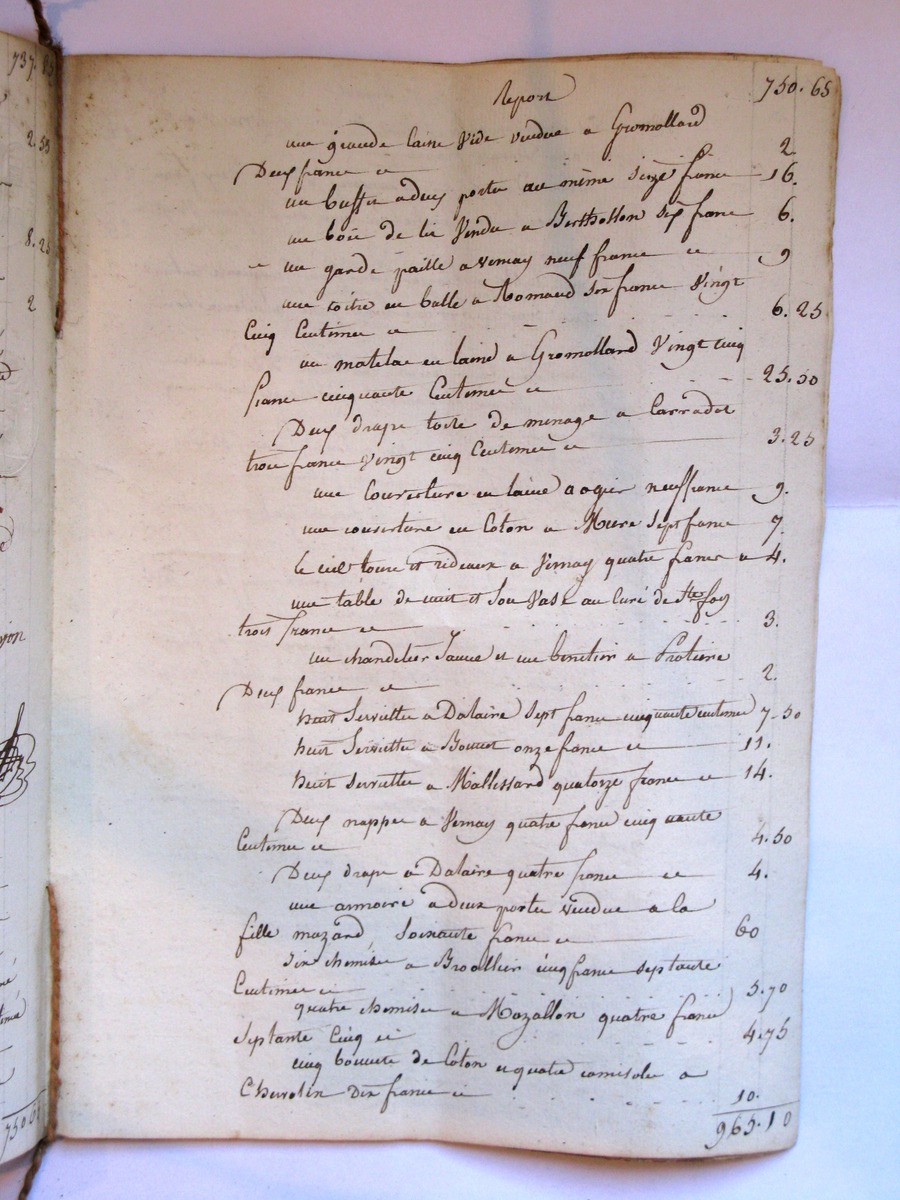 737. 85
2. 55
8. 25
2
750. 65
Report 750. 65
une grande caisse vide vendue a Gromollard
Deux francs ci 2
un buffet a deux portes au même seize francs 16.
un bois de lit vendu a Berthollon six francs 6.
un garde paille a vernay neuf francs ci 9
une coitre en balle a Romand six francs vingt
cinq centimes ci 6. 25
un matelas en laine a Gromollard vingt cinq
francs cinquante centimes ci 25. 50
Deux draps toile de menage a Carradot
trois francs vingt cinq centimes ci 3. 25
une couverture en laine a ogier neuf francs 9.
une couverture en coton a Mure sept francs 7
le ciel tours et rideaux a Vernay quatre francs ci 4.
une table de nuit et son vase au curé de Ste foy
trois francs ci 3.
un chandelier jaune et un benitier a Protiere
Deux francs ci 2.
huit serviettes a Dalaire sept francs cinquante centimes 7. 50
huit serviettes a Bonnet onze francs ci 11.
huit serviettes a Mallessard quatorze francs ci 14.
Deux nappes a Vernay quatre francs cinquante
centimes ci 4. 50
Deux draps a Dalaire quatre francs ci 4.
une armoire a deux portes vendue a la
fille mazard soixante francs ci 60
six chemises a Broallier cinq francs septante
centimes ci 5. 70
quatre chemises a Mazallon quatre francs
septante cinq ci 4. 75
cinq bonnets de coton et quatre camisoles a
Chervolin Dix francs ci 10.
965. 10